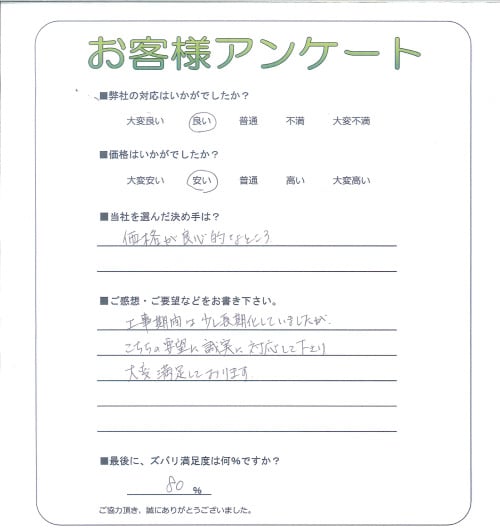 お客様アンケート
■弊社の対応はいかがでしたか？
大変良い 良い 普通 不満 大変不満
■価格はいかがでしたか？
大変安い 安い 普通 高い 大変高い
■当社を選んだ決め手は？
価格が良心的なところ
■ご感想・ご要望などをお書き下さい。
工事期間は少し長期化していましたが、
こちらの要望に誠実に対応して下さり
大変満足しております
■最後に、ズバリ満足度は何%ですか？
80 %
ご協力頂き、誠にありがとうございました。